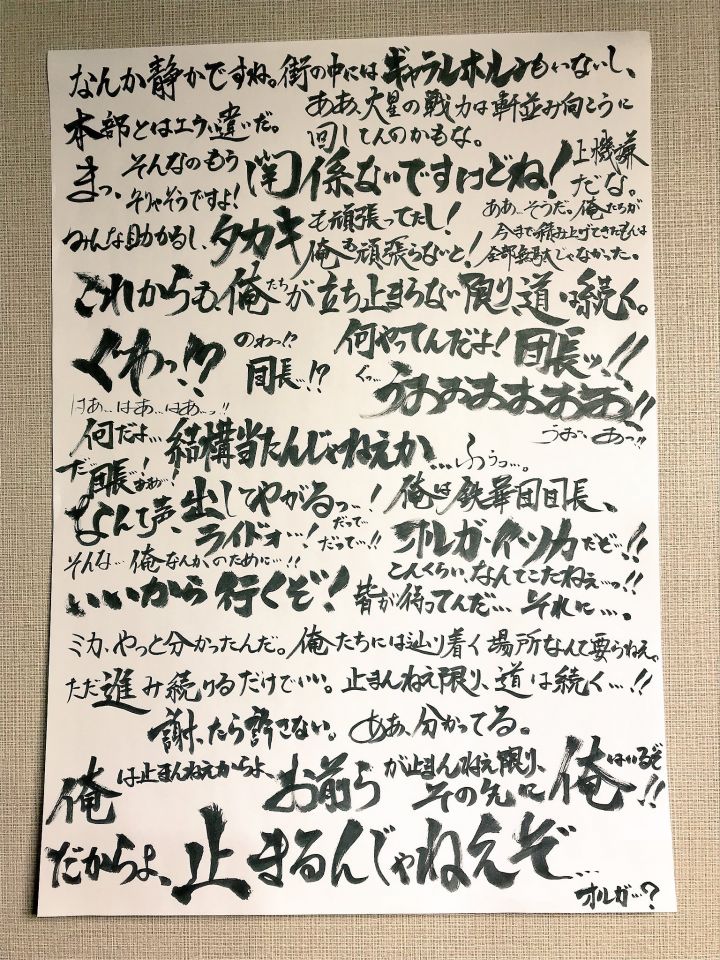 なんか静かですね。街の中にはギャラルホルンもいないし、
本部とはエラい違いだ。
ああ、火星の戦力は軒並み向こうに
回してんのかもな。
まっ、そんなのもう関係ないですけどね!
上機嫌
だな。
そりゃそうですよ!
みんな助かるし、タカキも頑張ってたし!
俺も頑張らないと!
ああ…そうだ。俺たちが
今まで積み上げてきたもんは
全部無駄じゃなかった。
これからも、俺たちが立ち止まらない限り、道は続く。
ぐわっ!?
のわっ!?
団長…!?
何やってんだよ!団長ッ!!
くっ…
うおおおおおお!!
はあ…はあ…はあ…っ!!
うおっ、あっ!!
何だよ…結構当たんじゃねえか…ふぅっ…。
だ…団長…!ああ…
なんて声、出してやがるっ…!
ライドォ…!
だって…
だって…!!
俺は鉄華団団長、
オルガ・イツカだぞ…!!
そんな…俺なんかのために…!!
こんくらい、なんてこたねぇ…っ!!
いいから行くぞ!
皆が待ってんだ…それに…。
ミカ、やっと分かったんだ。俺たちには辿り着く場所なんて要らねえ。
ただ進み続けるだけでいい。止まんねえ限り、道は続く…!!
謝ったら許さない。ああ、分かってる。
俺は止まんねえからよ
お前らが止まんねえ限り、
その先に俺はいるぞ!!
だからよ、止まるんじゃねえぞ…
オルガ…?